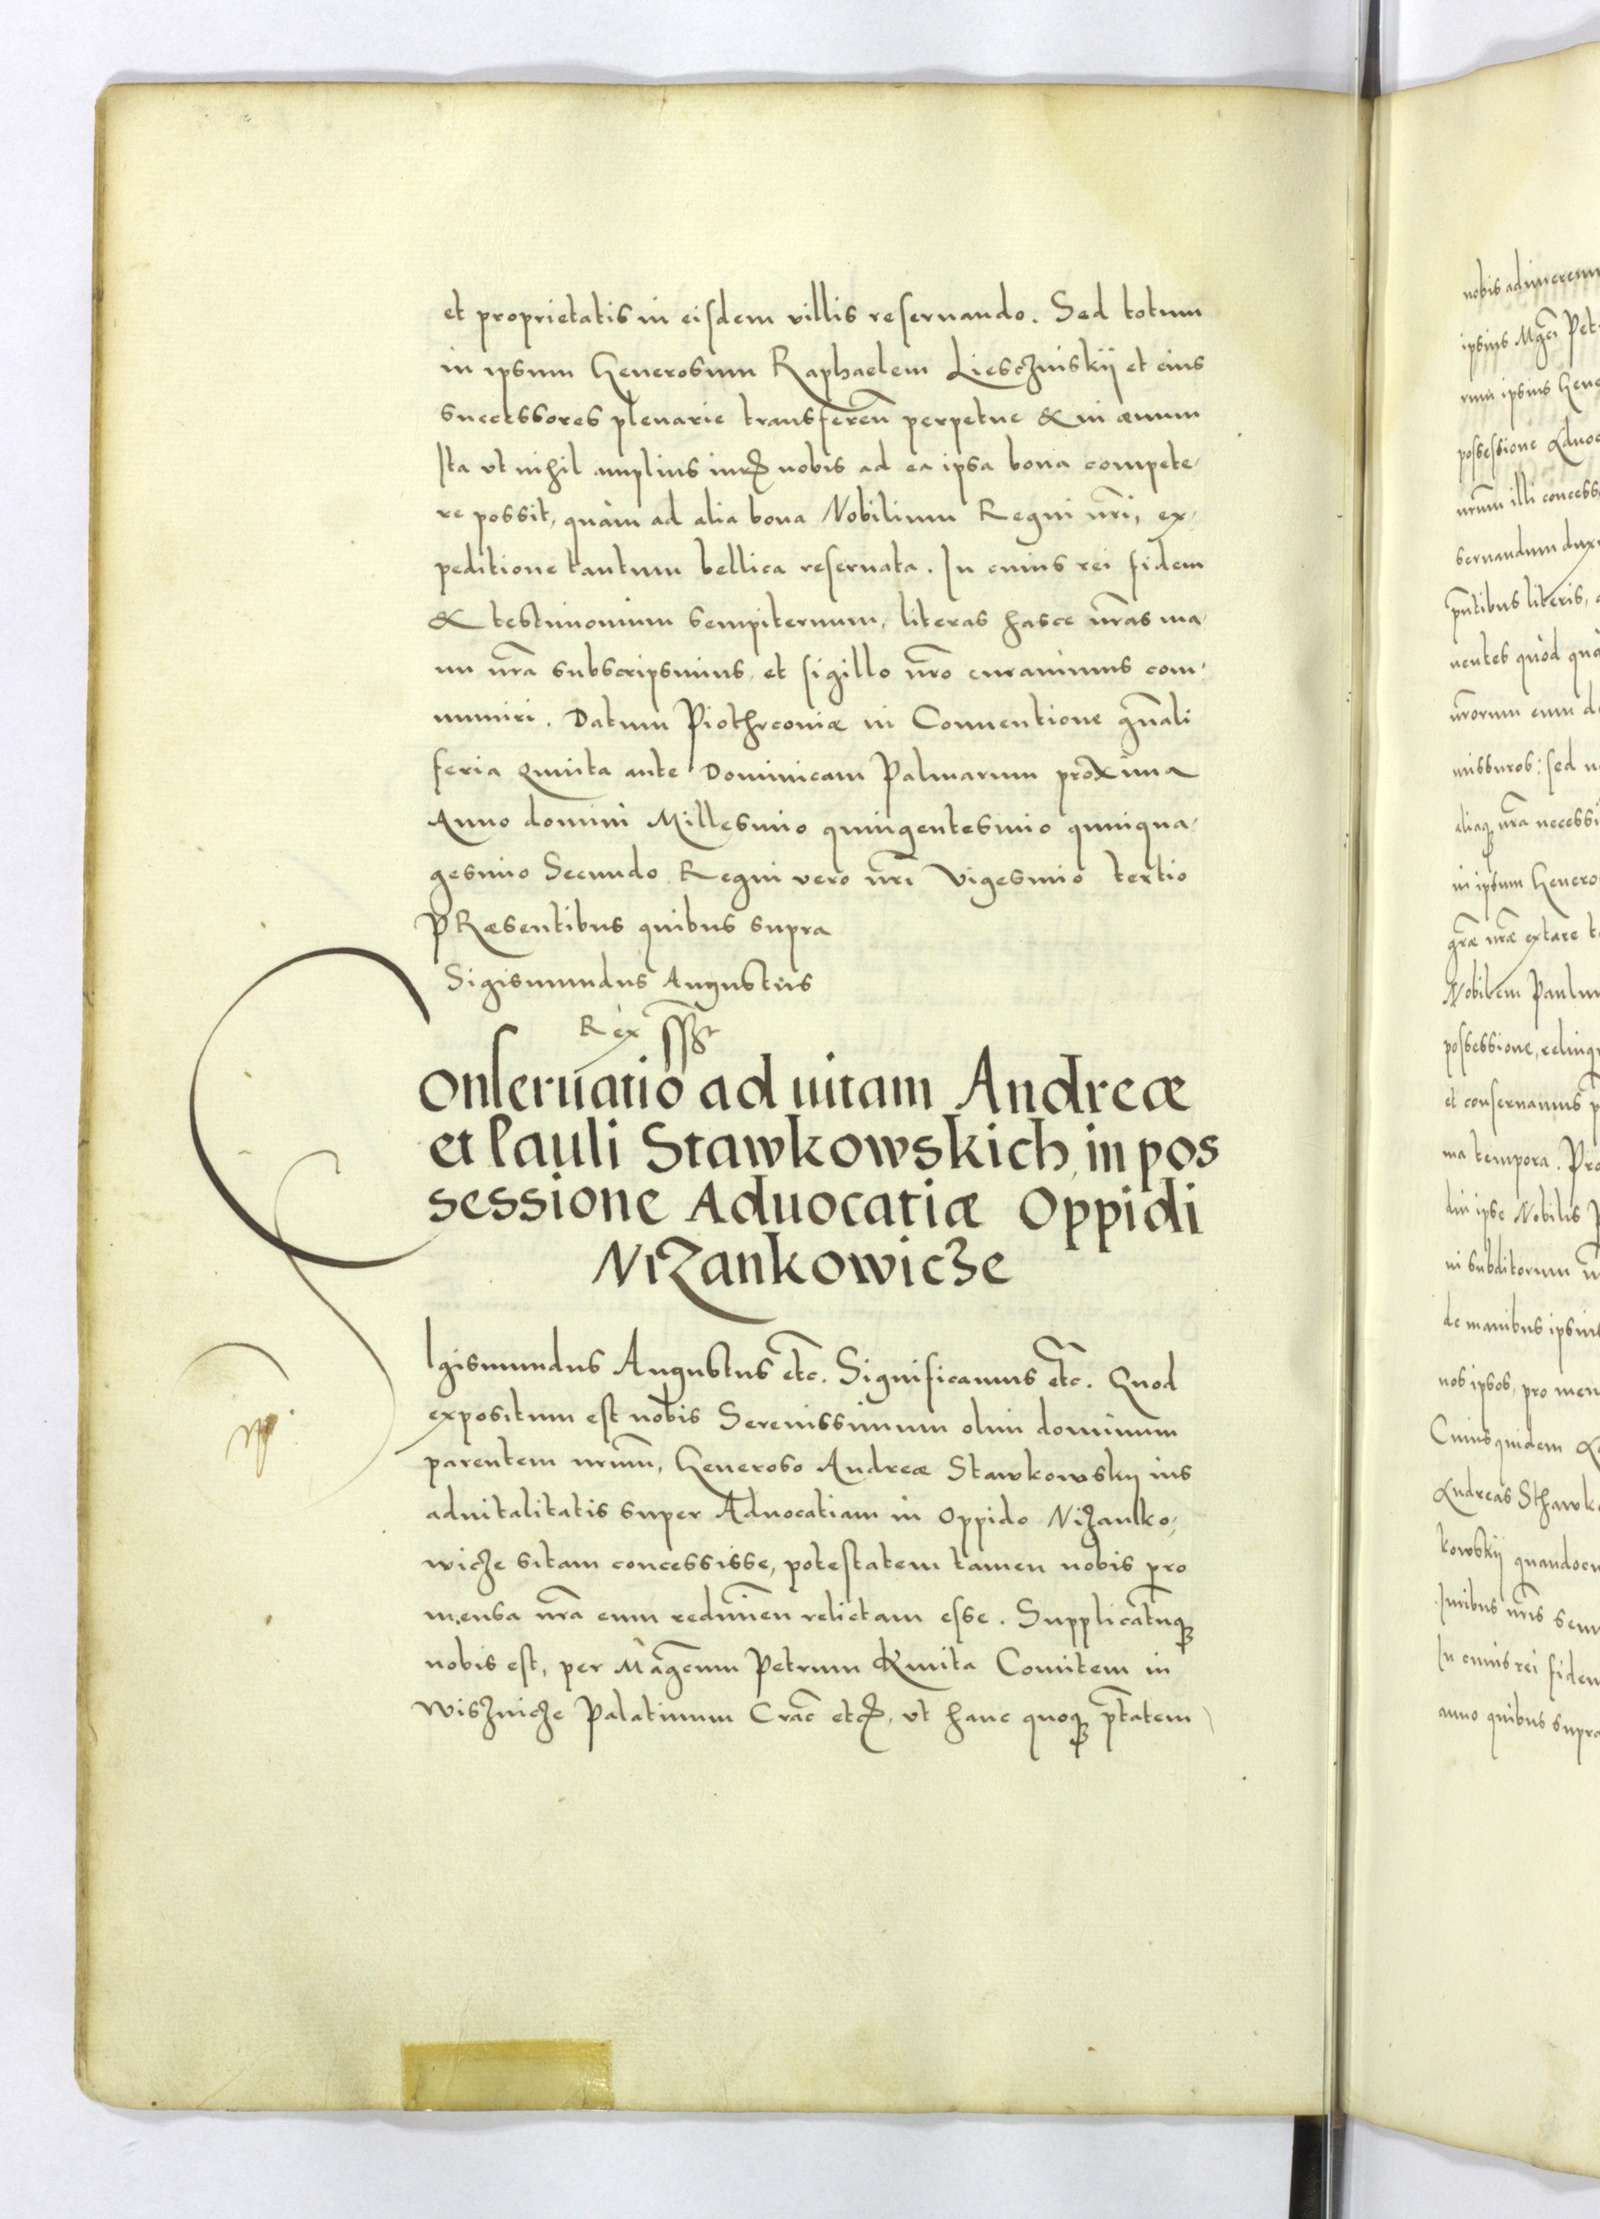 et proprietatis in eisdem villis reseruando. Sed totum
in ipsum Generosum Raphaelem Liesczinskij et eius
successores plenarie transferen̄ perpetue & in æuum
Ita vt nihil amplius nobis ad ea ipsa bona compete-
re possit, quàm ad alia bona Nobilium Regni nr̄i, ex-
peditione tantum bellica reseruata. In cuius rei fidem
& testimonium sempiternum, literas hasce nr̄as ma-
nu nr̄a subscripsimus, et sigillo nr̄o curauimus com-
muniri. Datum Piothrcoviæ in Conuentione gn̄ali
feria Quinta ante Dominicam Palmarum proxima
Anno domini Millesimo quingentesimo quinqua-
gesimo Secundo Regni vero nr̄i Vigesimo tertio
PRæsentibus quibus supra
Sigismundus Augustus
Rex
Conseruatio ad uitam Andreæ
et Pauli Stawkowskich, in pos
sessione Aduocatiæ Oppidi
Nizankowicze
Sigismundus Augustus etc̄. Significamus etc̄. Quod
expositum est nobis Serenissimum olim dominum
parentem nr̄um, Generoso Andreæ Stawkowskij ius
aduitalitatis super Aduocatiam in Oppido Nizanko-
wicze sitam concessisse, potestatem tamen nobis pro
mensa nr̄a eum redimen̄ relictam esse. Supplicatumq3
nobis est, per Maḡcum Petrum Kmita Comitem in
Wisznicze Palatinum Crac̄ etc̄, vt hanc quoq3 pt̄atem
nobis adimeremus
ipsius Mgc̄i Pet
rum ipsius Gene
possessione Aduoc
nr̄um illi concess
seruandum dux
pn̄tibus literis,
uentes quòd quà
nr̄orum eum de
missuros: sed n
aliaq3 nr̄a necessi
in ipsum Genero
gr̄æ nr̄æ extare t
Nobilem Paulum
possessione, relinq
et conseruamus p
ma tempora. Pro
diu ipse Nobilis P
ni subditorum
de manibus ipsius
nos ipsos, pro men
Cuiusquidem
Andreas Sthawk
kowskij quandocu
Iuribus nr̄is sem
In cuius rei fidem
anno quibus supra